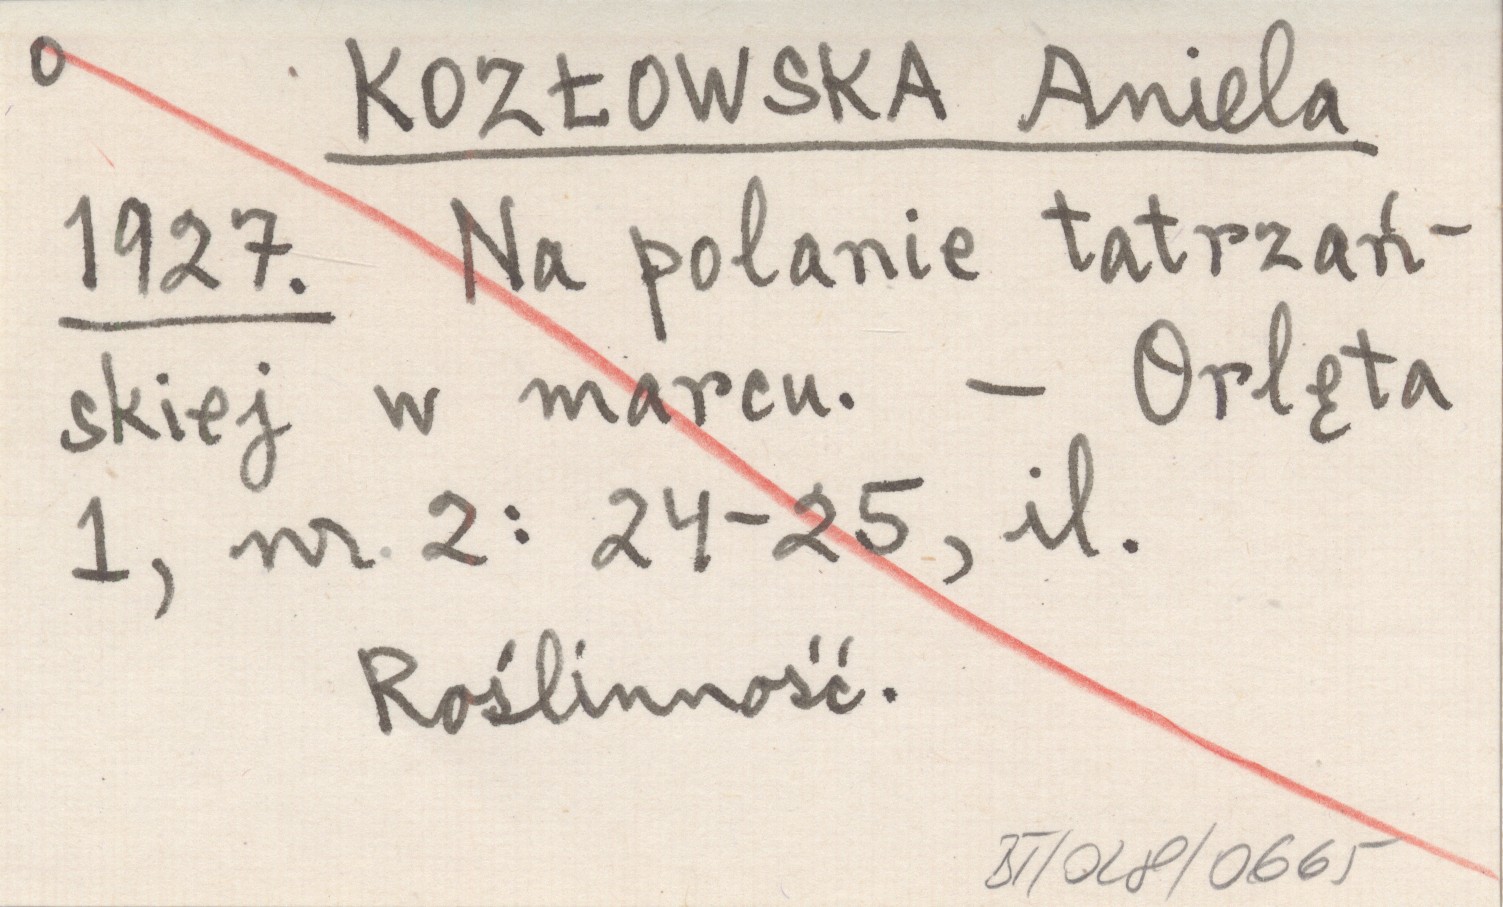 o KOZŁOWSKA Aniela
1927. Na polanie tatrzań-
skiej w marcu. — Orlęta
1, nr 2: 24-25, il.
Roślinność.